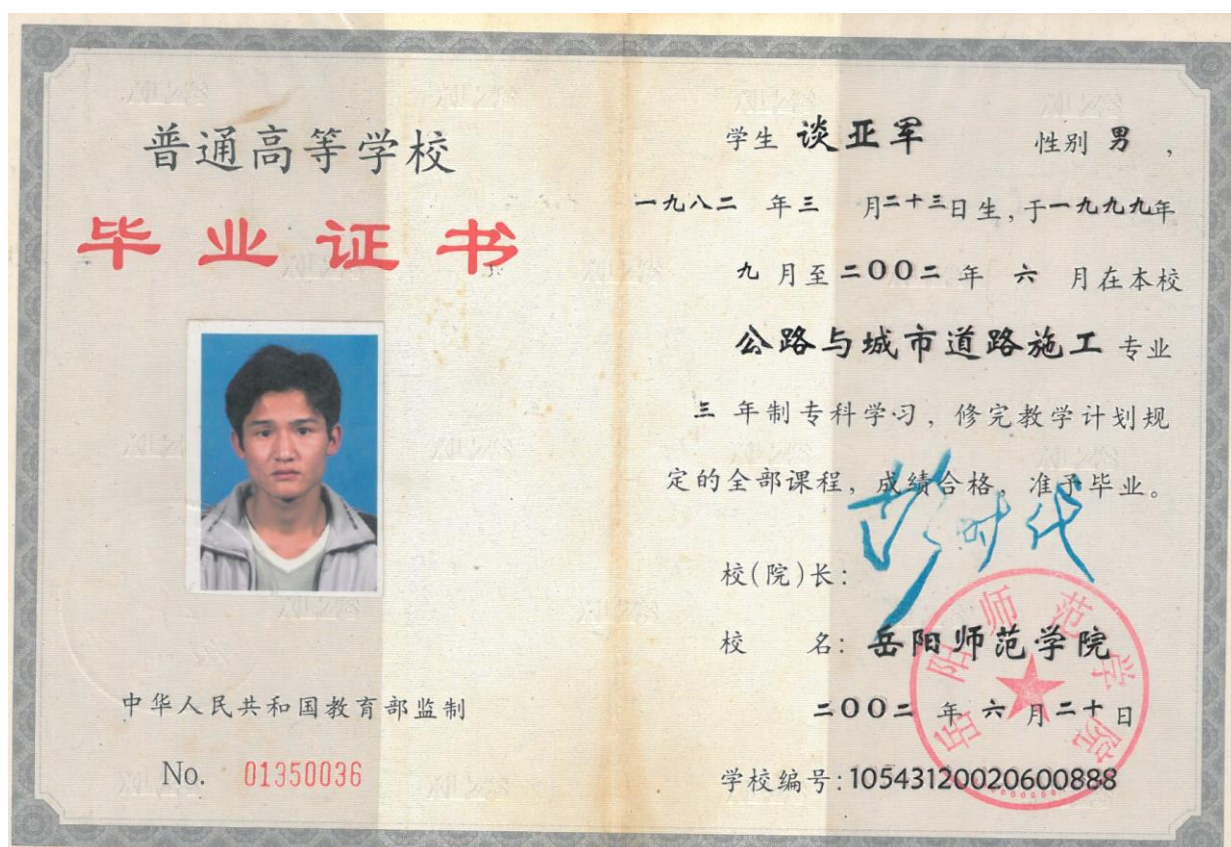 普通高等学校
毕业证书
中华人民共和国教育部监制
No. 01350036
学生 谈亚军 性别 男，
一九八二 年三 月二十三日生，于一九九九年
九 月至二00二 年 六 月在本校
公路与城市道路施工 专业
三 年制专科学习，修完教学计划规
定的全部课程，成绩合格，准予毕业。
彭时代
校(院)长：
校 名：岳阳师范学院
二00二 年 六 月二十日
学校编号：105431200206００888
岳阳师范学院